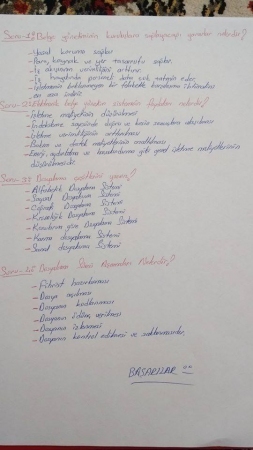 Soru-1: Belge yönetiminin kurumlara sağlayacağı yararlar nelerdir?
- Yasal koruma sağlar
- Para, kaynak ve yer tasarrufu sağlar.
- İş akışının verimliliğini arttırır
- İş hayatında personeli daha çok motive eder
- İşletmenin beklenmeyen bir tehlikede kurtulma ihtimalini
en aza indirir
Soru-2: Elektronik belge yönetim sisteminin faydaları nelerdir?
- İşletme maliyetinin düşürülmesi
- Erişebilme sayesinde doğru ve kesin sonuçlara ulaşılması
- İşletme verimliliğinin arttırılması
- Bakım ve destek maliyetlerinin azaltılması
- Enerji, aydınlatma ve havalandırma gibi genel işletme maliyetlerinin
düşürülmesidir.
Soru-3: Dosyalama çeşitlerini yazınız?
- Alfabetik Dosyalama Sistemi
- Sayısal Dosyalama Sistemi
- Coğrafi Dosyalama Sistemi
- Kronolojik Dosyalama Sistemi
- Konularına göre Dosyalama Sistemi
- Karma dosyalama Sistemi
- Sanal dosyalama Sistemi
Soru-4: Dosyalama Süreci Aşamaları Nelerdir?
- Fihrist hazırlanması
- Dosya açılması
- Dosyanın kodlanması
- Dosyanın ödünç verilmesi
- Dosyanın izlenmesi
- Dosyanın kontrol edilmesi ve saklanmasıdır.
BAŞARILAR